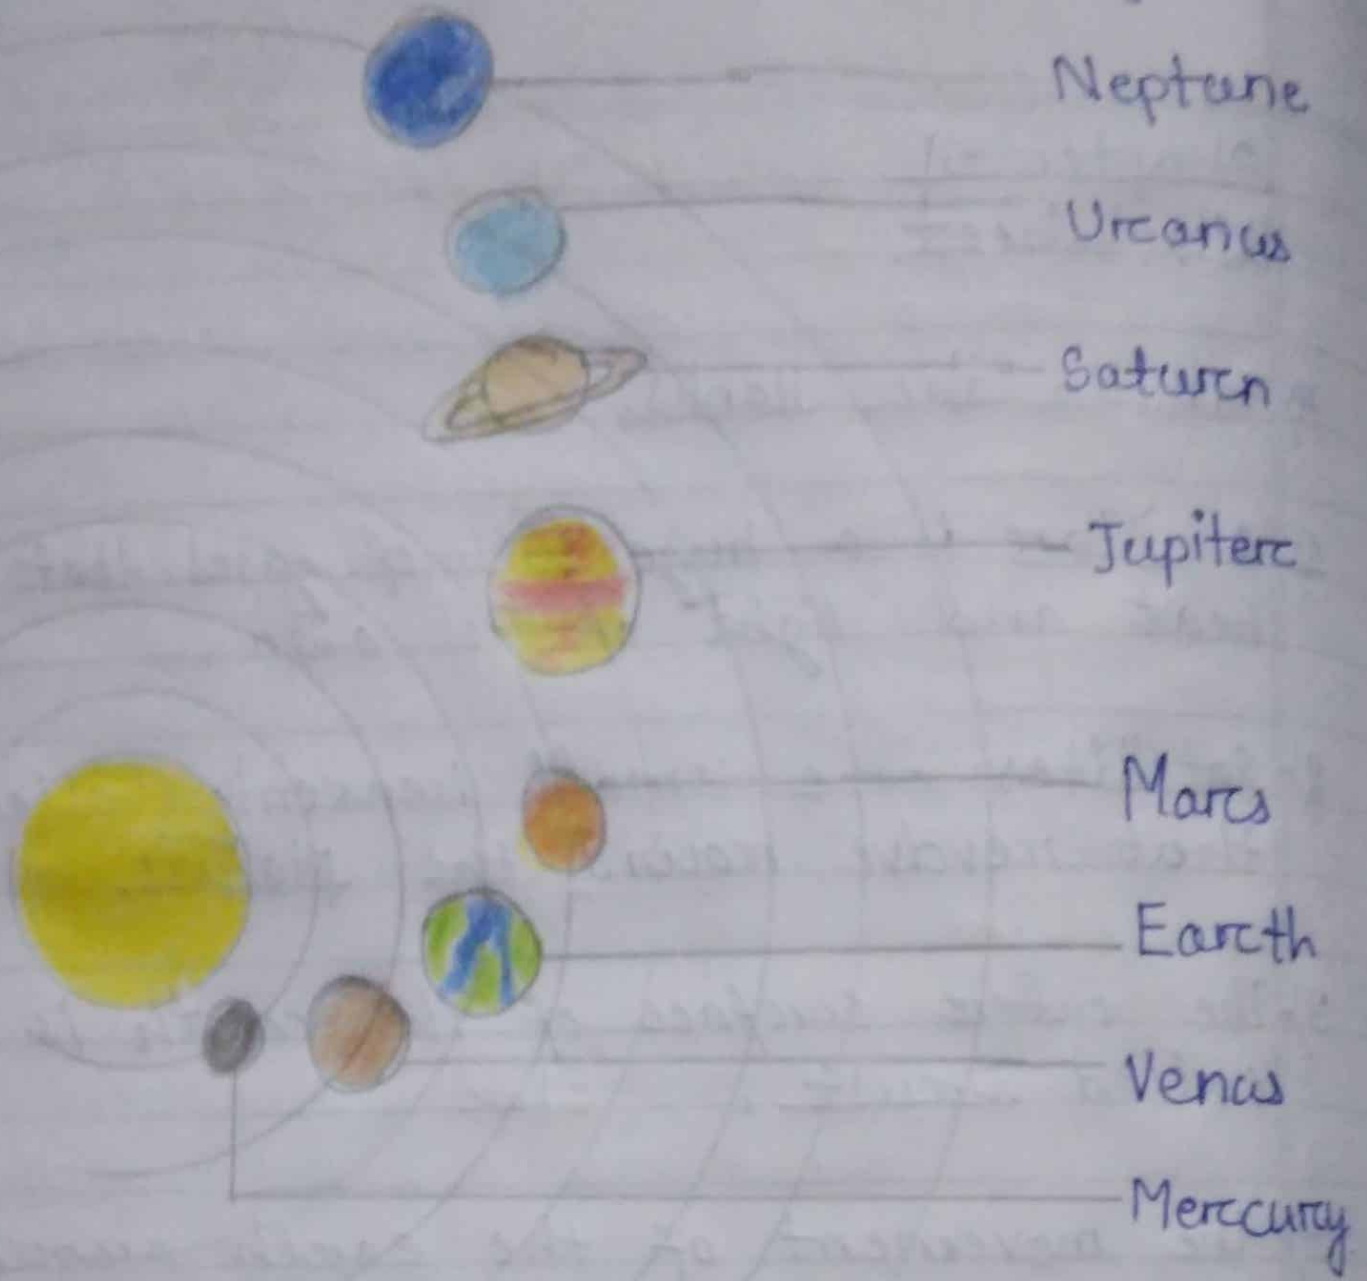 Neptune
Uranus
Saturn
Jupiter
Mars
Earth
Venus
Mercury